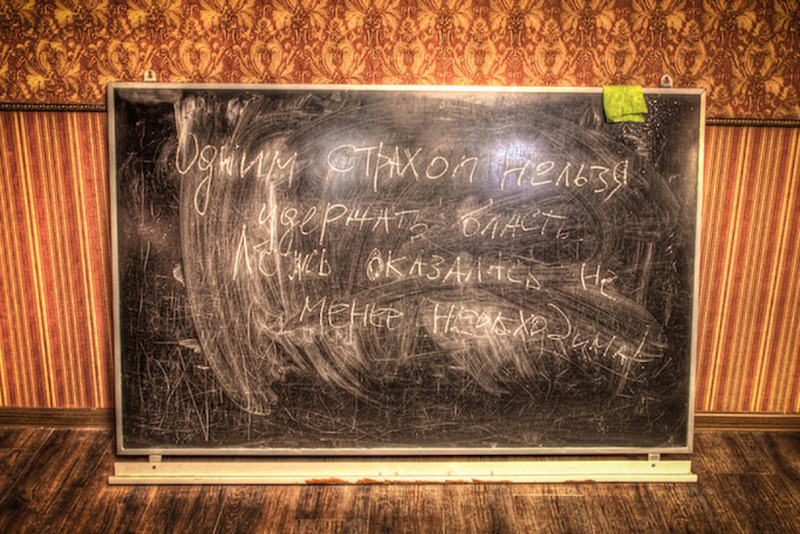 Одним страхом нельзя
удержать власть
Ложь оказалась не
менее необходима!